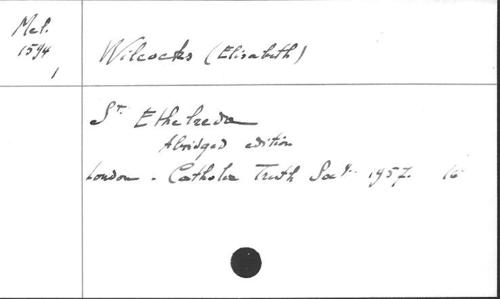 Mel.
1594
1
Wilcocks (Elisabeth)
St. Etheldreda
Abridged edition
London - Catholic Truth Socy. 1957. 16